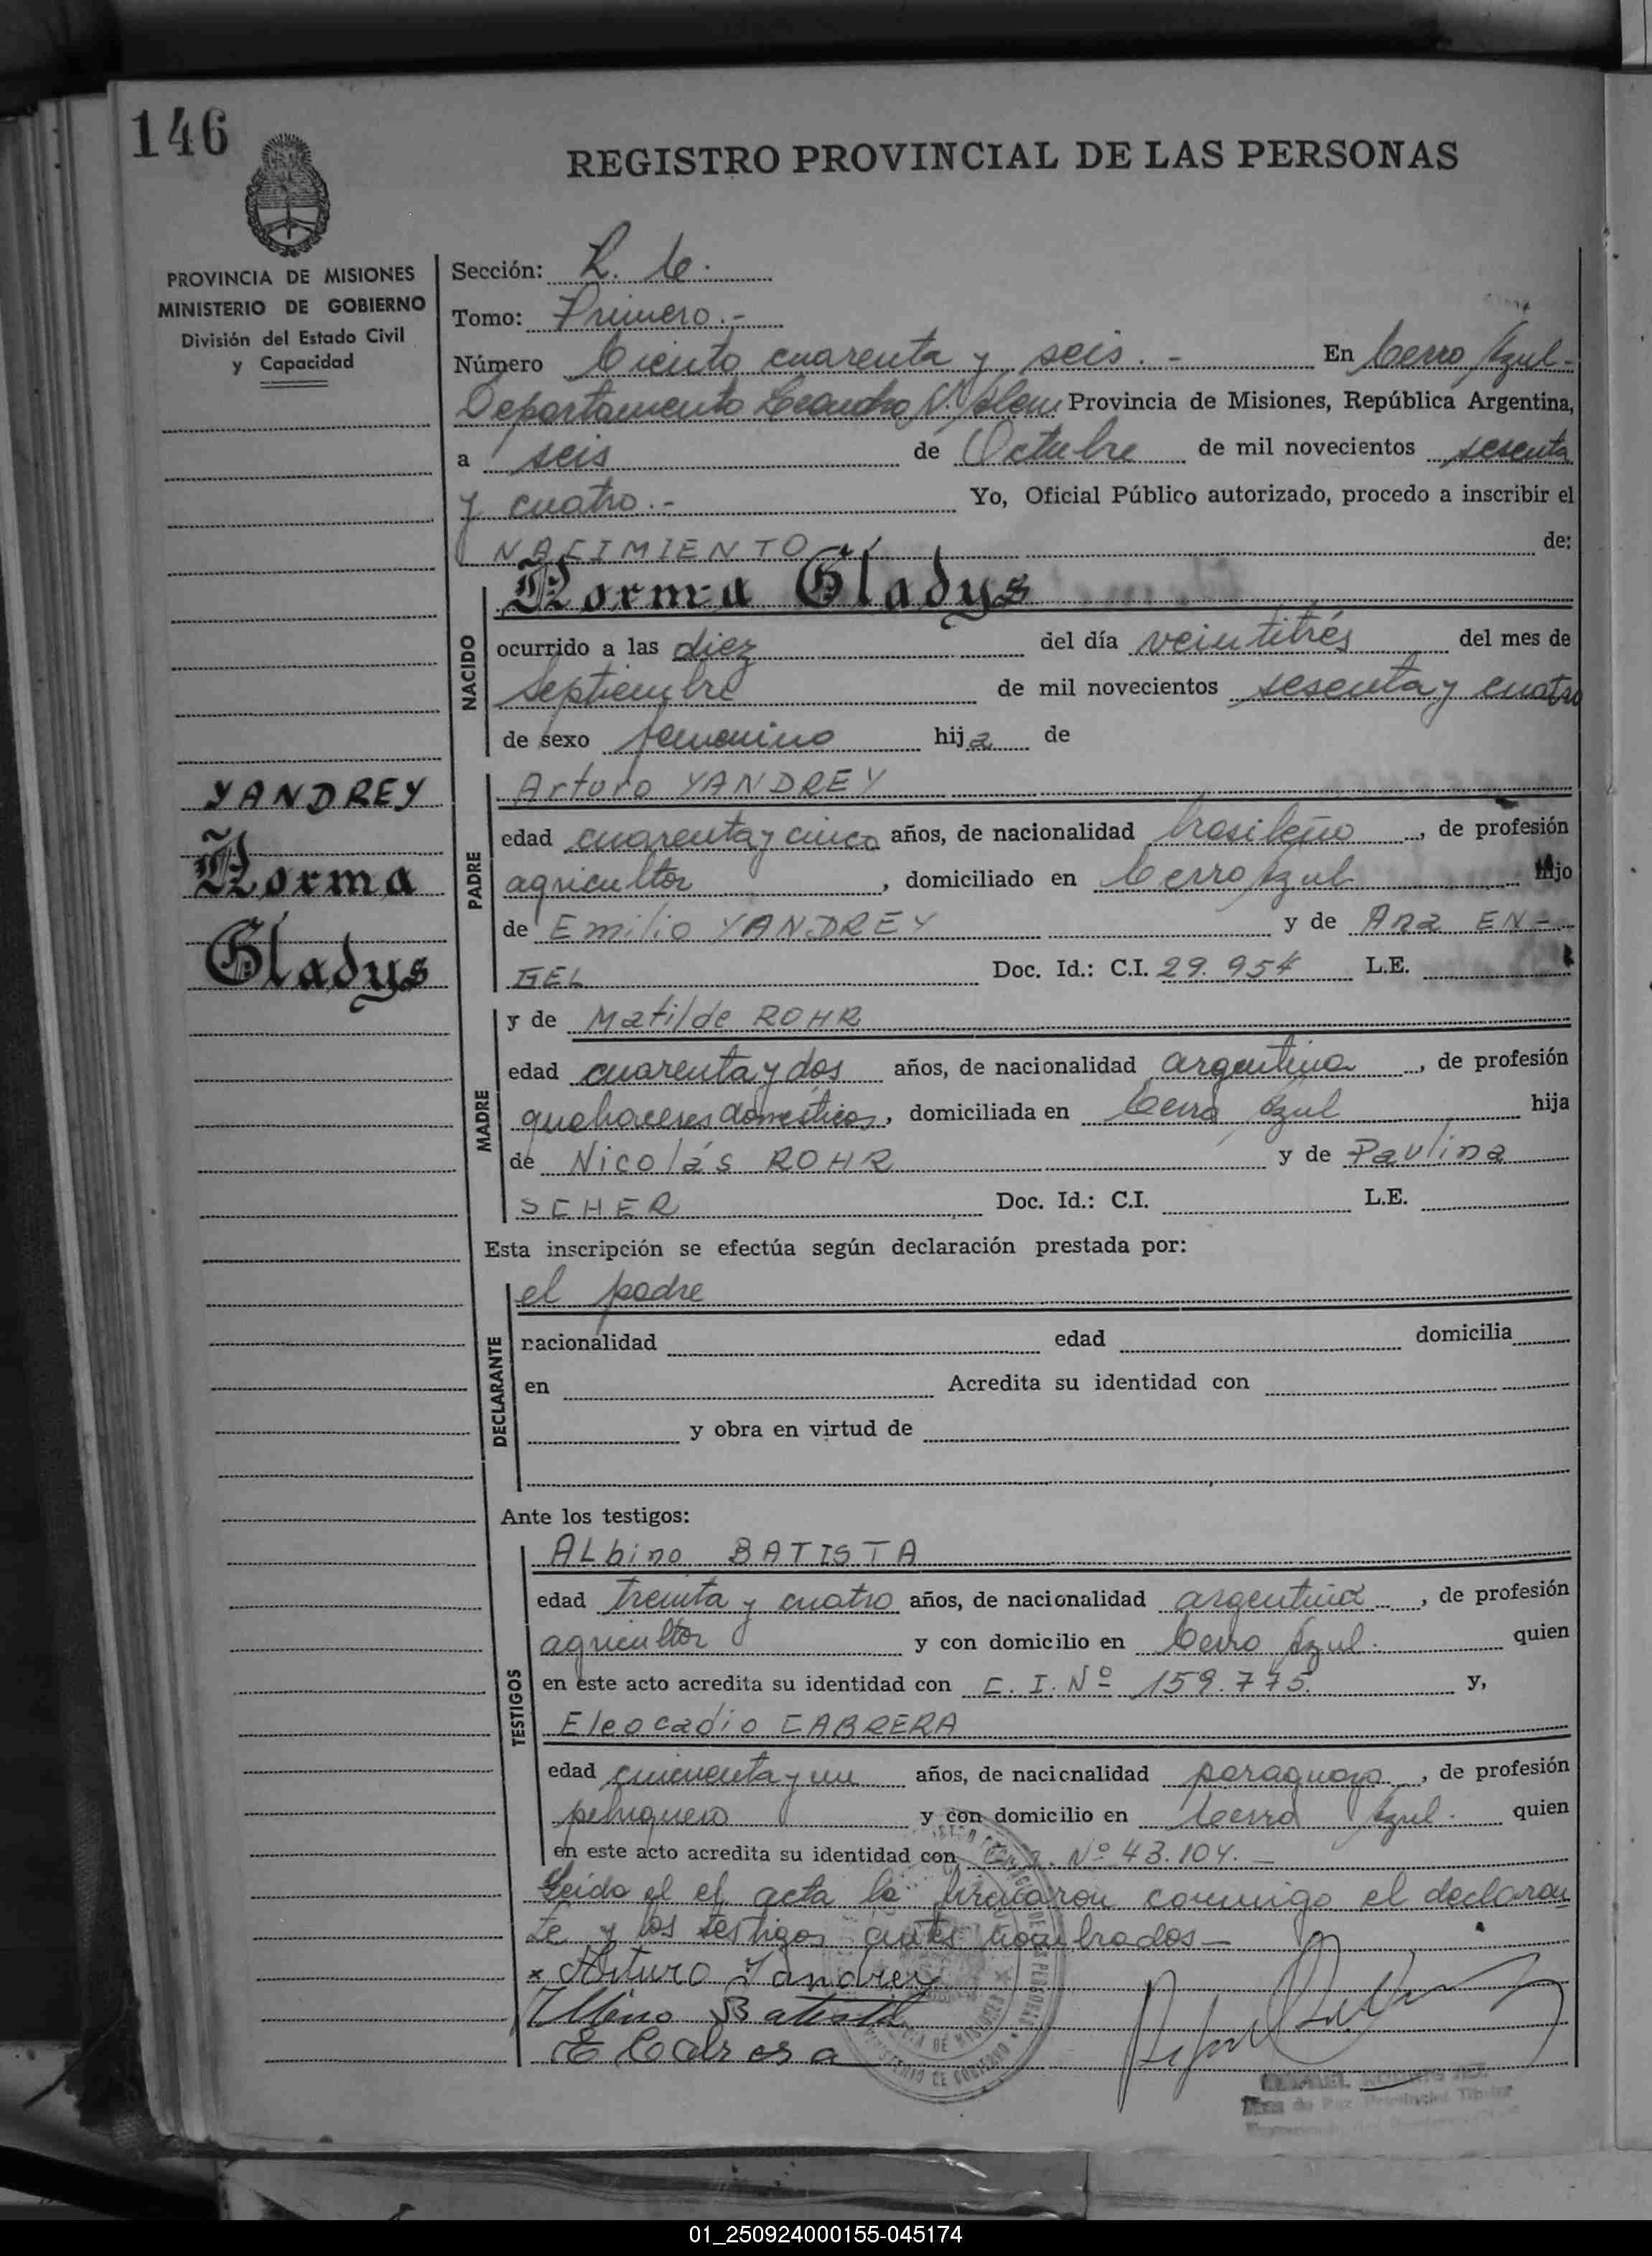 146
REGISTRO PROVINCIAL DE LAS PERSONAS
PROVINCIA DE MISIONES
MINISTERIO DE GOBIERNO
División del Estado Civil
y Capacidad
Sección:
Tomo: Primero.-
Número Ciento cuarenta y seis.- En Cerro Azul-
Departamento Leandro N. Alem Provincia de Misiones, República Argentina,
a seis de Octubre de mil novecientos sesenta
y cuatro.- Yo, Oficial Público autorizado, procedo a inscribir el
NACIMIENTO de:
NACIDO
Norma Gladys
ocurrido a las diez del día veintitrés del mes de
septiembre de mil novecientos sesenta y cuatro
de sexo femenino hija de
YANDREY
Norma
Gladys
PADRE
Arturo YANDREY
edad cuarenta y cinco años, de nacionalidad brasileño, de profesión
agricultor, domiciliado en Cerro Azul hijo
de Emilio YANDREY y de Ana EN-
GEL Doc. Id.: C.I. 29.954 L.E.
MADRE
y de Matilde ROHR
edad cuarenta y dos años, de nacionalidad argentina, de profesión
quehaceres domésticos, domiciliada en Cerro Azul hija
de Nicolás ROHR y de Paulina
SCHER Doc. Id.: C.I. L.E.
Esta inscripción se efectúa según declaración prestada por:
DECLARANTE
el padre
nacionalidad edad domicilia
en Acredita su identidad con
y obra en virtud de
Ante los testigos:
TESTIGOS
ALbino BATISTA
edad treinta y cuatro años, de nacionalidad argentina, de profesión
agricultor y con domicilio en Cerro Azul. quien
en este acto acredita su identidad con C. I. Nº 159.775. y,
Eleocadio CABRERA
edad cincuenta y un años, de nacionalidad paraguaya, de profesión
peluquero y con domicilio en Cerro Azul. quien
en este acto acredita su identidad con Nº 43.104.-
Leida el acta la firmaron conmigo el declaran
te y los testigos antes nombrados-
x Arturo Yandrey
Albino Batista
E Cabrera
01_250924000155-045174